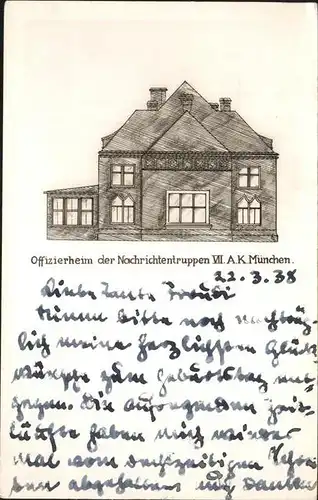 Offizierheim der Nachrichtentruppen VII. A.K. München.
22.3.38
Liebe Tante
Nimm bitte noch nachträg-
lich meine herzlichsten Glück-
wünsche zum Geburtstag ent-
gegen. Die aufregenden Zeit-
läufte haben mich wieder
mal vom rechtzeitigen Schrei-
ben abgehalten und